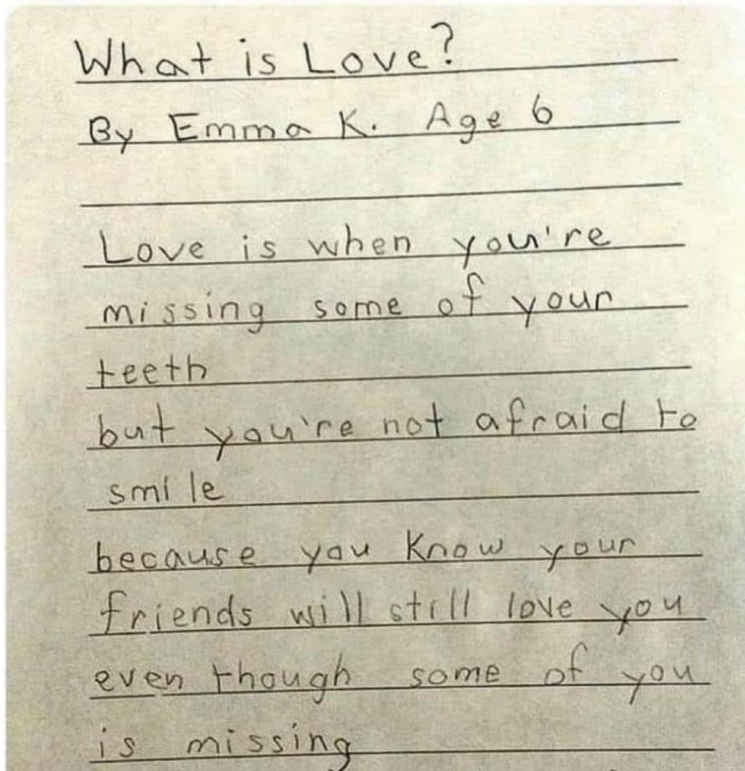 What is Love?
By Emma K. Age 6
Love is when you're
missing some of your
teeth
but you're not afraid to
smile
because you know your
friends will still love you
even though some of you
is missing